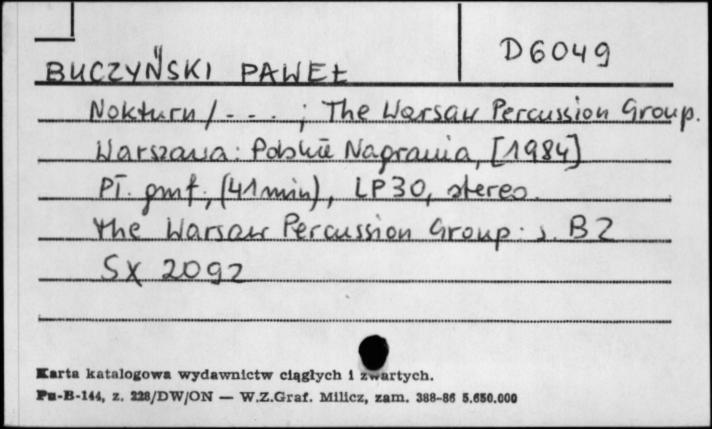 D6049
BUCZYŃSKI PAWEŁ
Nokturn / - - - ; The Warsaw Percussion Group.
Warszawa: Polskie Nagrania, [1984]
Pł. gmf., (41 min), LP30, stereo.
The Warsaw Percussion Group: s. B2
SX 2092
Karta katalogowa wydawnictw ciągłych i zwartych.
Pu-B-144, z. 228/DW/ON — W.Z.Graf. Milicz, zam. 388-86 5.650.000